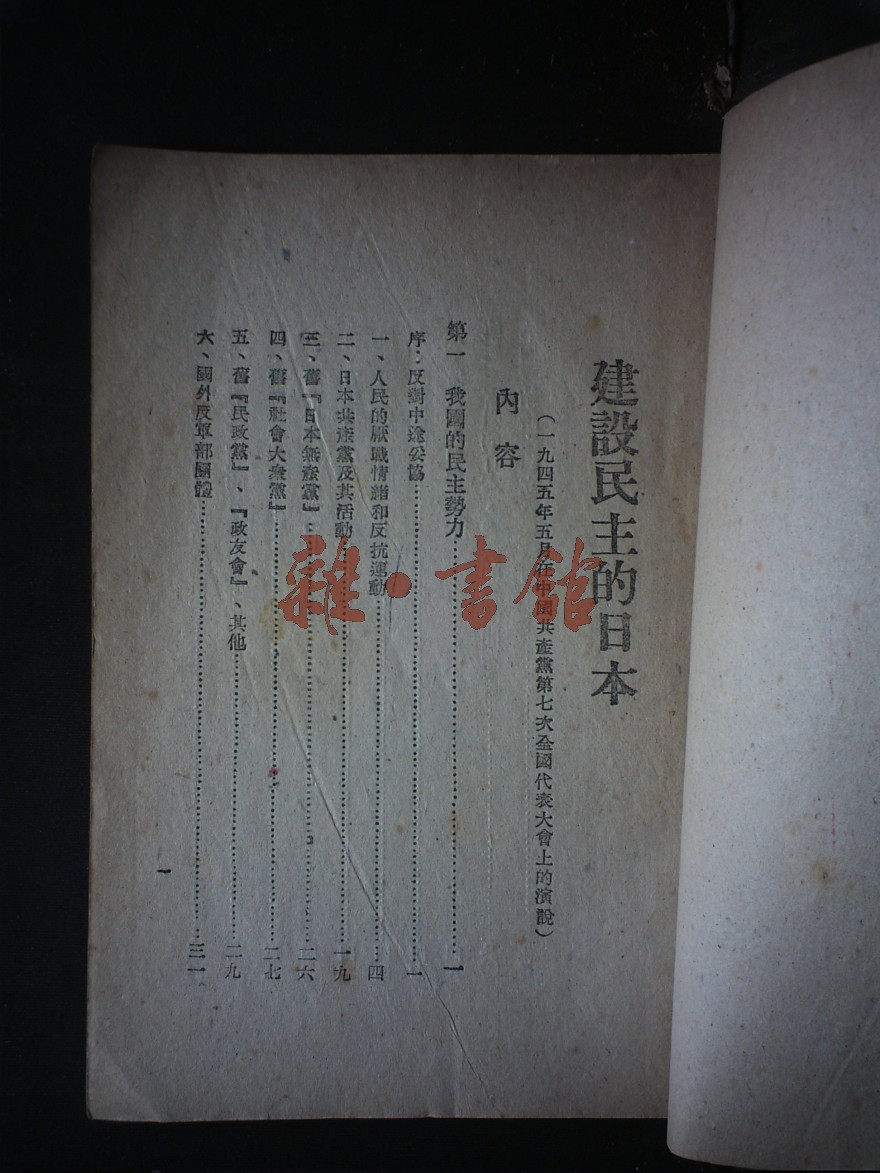 建設民主的日本
（一九四五年五月在中國共產黨第七次全國代表大會上的演說）
內容
第一　我國的民主勢力……一
序：反對中途妥協……一
一、人民的厭戰情緒和反抗運動……四
二、日本共產黨及其活動……一九
三、舊『日本無產黨』……二六
四、舊『社會大衆黨』……二七
五、舊『民政黨』、『政友會』、其他……二九
六、國外反軍部團體……三一
一
雜·書館